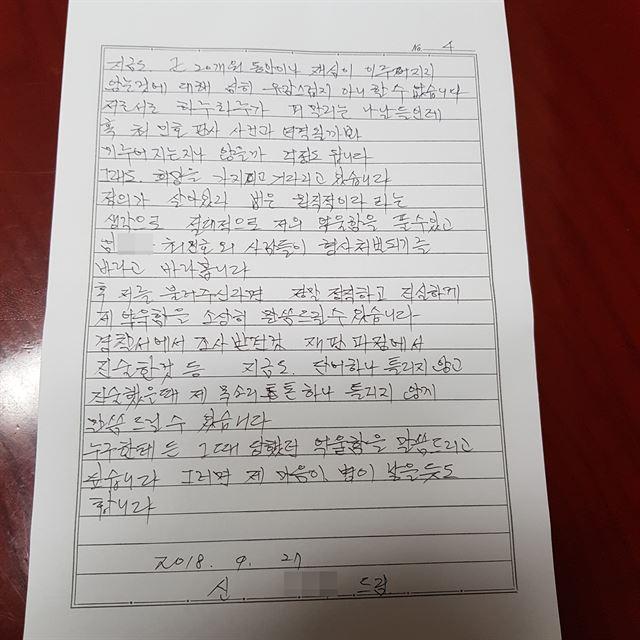 No. 4
지금도 근 20개월 동안이나 재심이 이루어지지
않는것에 대해 심히 유감스럽지 아니 할 수 없습니다
저로서는 하루하루가 피 말리는 나날들인데
혹 최인호 판사 사건과 연격될가바
이루어지는지나 않을가 걱정도 됩니다
그래도 희망을 가지고 기다리고 있습니다
정의가 살아있다 법은 원칙적이라 라는
생각으로 절대적으로 저의 억울함을 풀수있고
최인호 외 사람들이 형사처벌되기를
바라고 바라봅니다
혹 저를 불러주신다면 정말 정확하고 진실하게
제 억울함을 소상히 말씀드릴수 있습니다
경찰서에서 조사 받던것 재판 과정에서
진술한것 등 지금도 단어하나 틀리지 않고
진술했을때 제 목소리 톤하나 틀리지 않게
말씀 드릴 수 있습니다
누구한태든 그때 당했던 억울함을 말씀드리고
싶습니다 그러면 제 마음이 병이 날을듯도
합니다
2018. 9. 27
신 드림